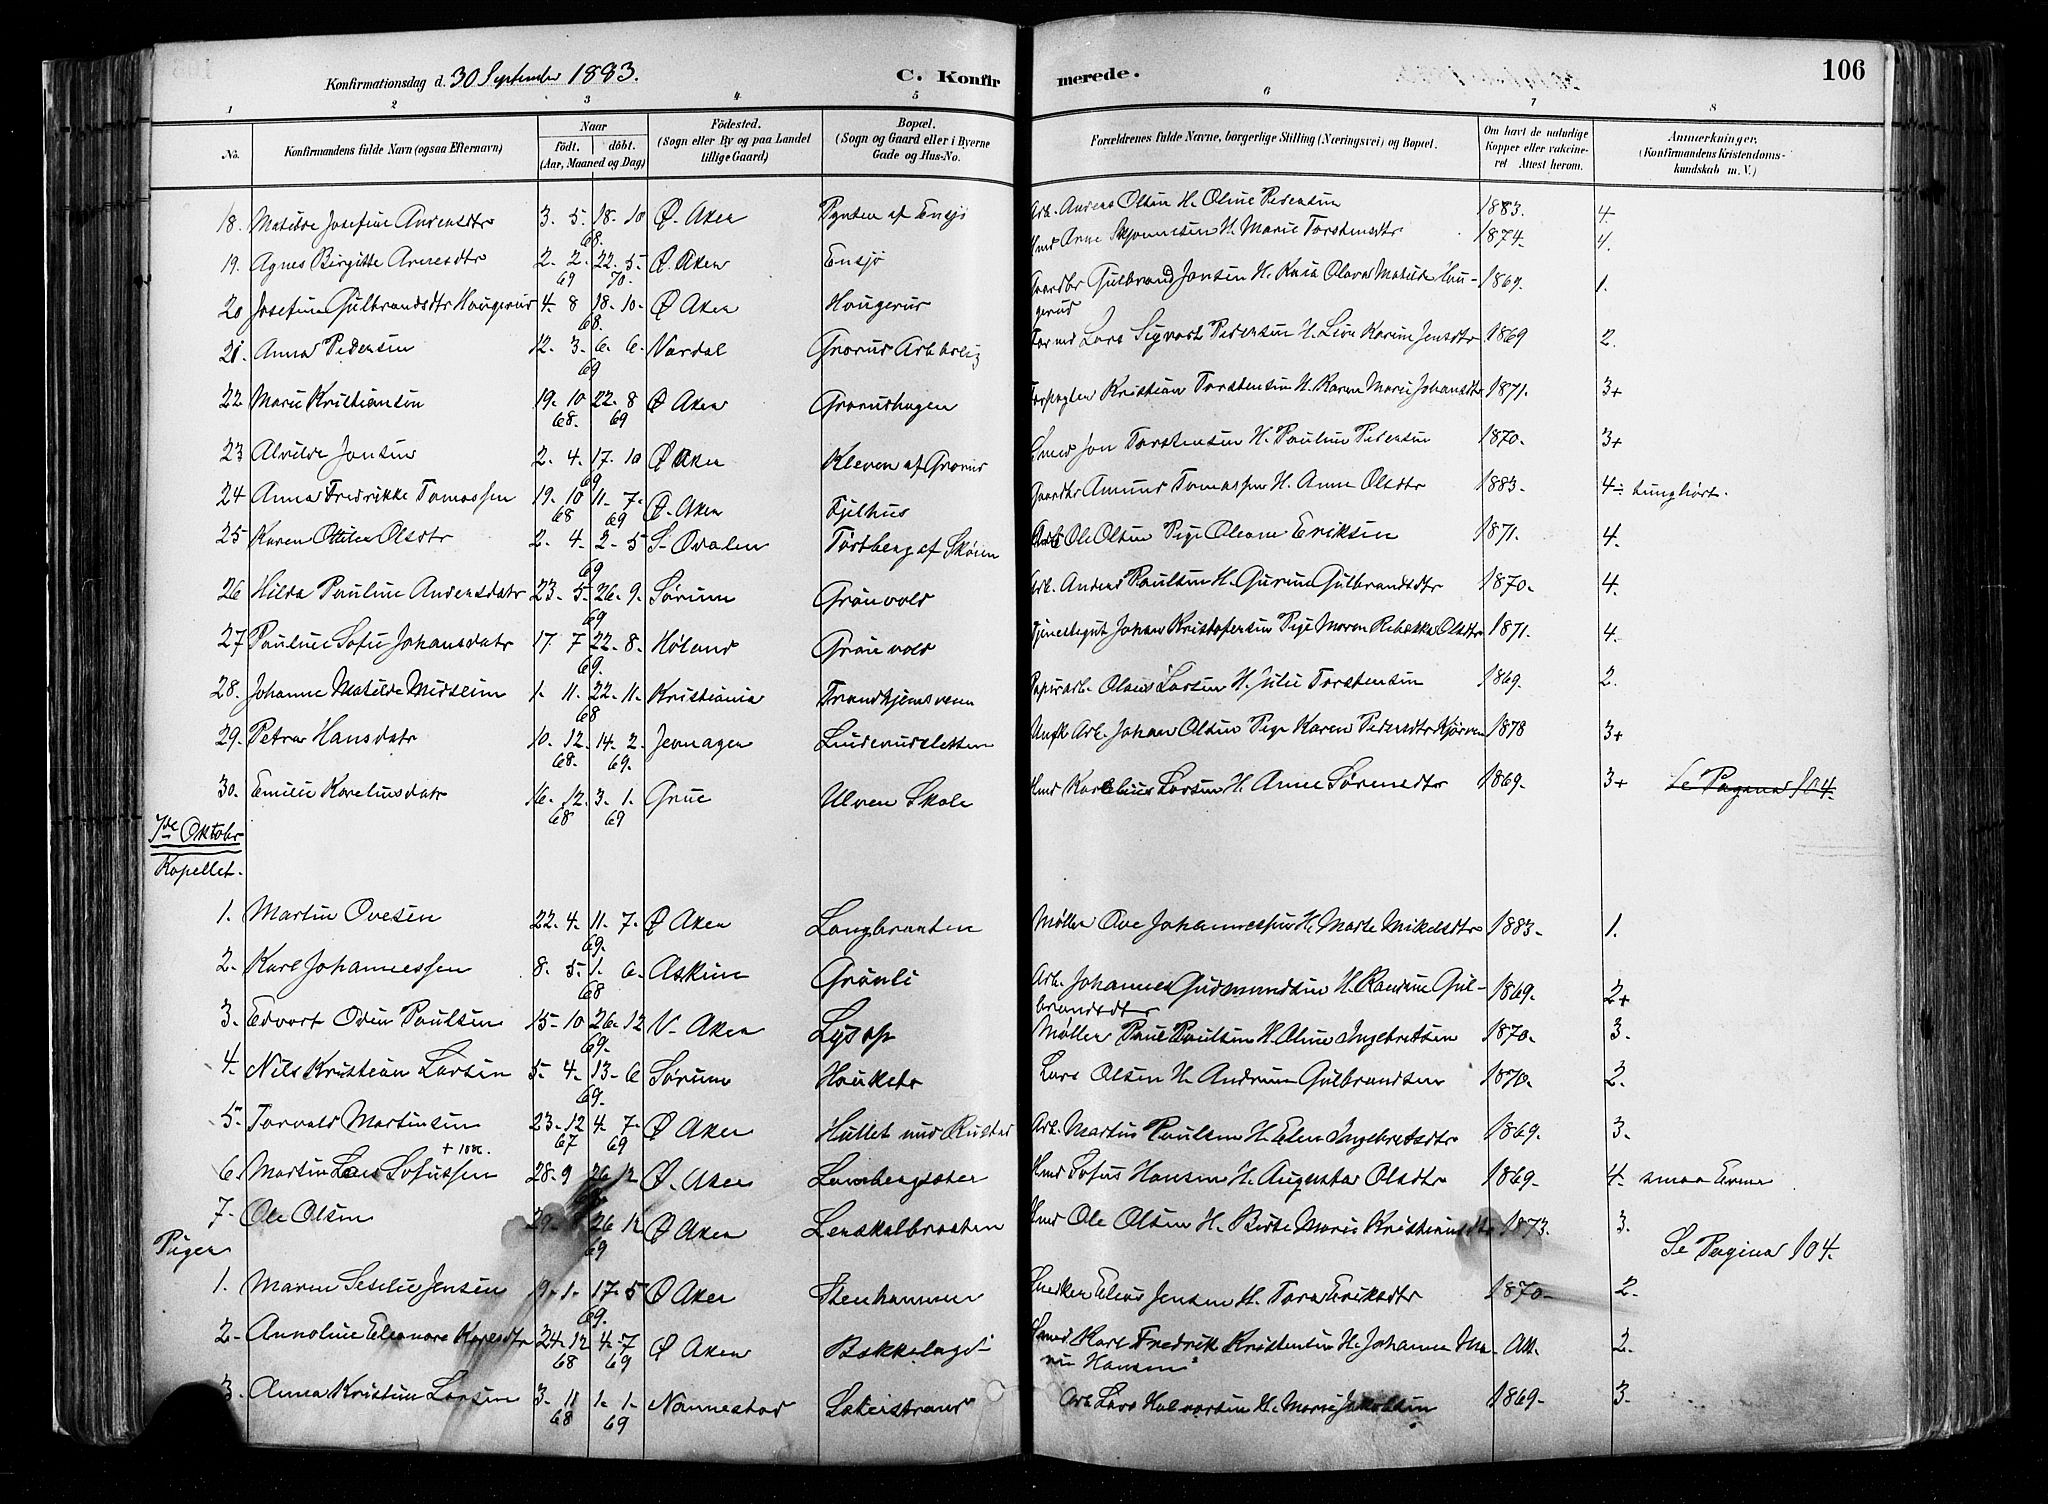 Konfirmationsdag d. 30 September 1883.
C. Konfir merede.
106
1 2 3 4 5 6 7 8
No. Konfirmandens fulde Navn (ogsaa Efternavn) Naar födt. döbt. (Aar, Maaned og Dag) Födested. (Sogn eller By og paa Landet tillige Gaard) Bopæl. (Sogn og Gaard eller i Byerne Gade og Hus-No. Forældrenes fulde Navne, borgerlige Stilling (Næringsvei) og Bopæl. Om havt de naturlige Kopper eller vakcineret Attest herom. Anmerkninger, (Konfirmandens Kristendomskundskab m. V.)
18. Matilde Josefine Andersdtr 3. 5. 18. 10 68. Ø. Aker Pynten af Ensjø Arb. Anders Olsen H. Oline Pedersen 1883. 4.
19. Agnes Birgitte Arnesdtr 2. 2. 69 22. 5. 70. Ø. Aker Ensjø Hmd Arne H. Marie Torstensdtr 1874. 4.
20 Josefine Gulbrandsdtr Haugerud 4. 8 18. 10. 68. Ø Aker Haugerud Gaardbr Gulbrand Jensen H. Olava Matilde Haugerud 1869. 1.
21. Anna Pedersen 12. 3. 6. 6. 69 Vardal Grorud Arb bolig Lars Sigvart Pedersen H. Karine Jensdtr 1869 2.
22 Marie Kristiansen 19. 10 68. 22. 8 69 Ø Aker Grorudhagen Forpagter Kristian Torstensen H. Karen Marie Johansdtr 1871. 3+
23 Alvilde Jonsen 2. 4. 17. 10 69 Ø Aker Kleven af Grorud Smed Jon Torstensen H. Pauline Pedersen 1870. 3+
24 Anna Fredrikke Tomassen 19. 10 68 11. 7. 69 Ø. Aker Fjelhus Gaardbr Amund Tomassen H. Anne Olsdtr 1883. 4÷ tunghørt.
25 Karen Otilie Olsdtr 2. 4. 2. 5 69 S. Odalen Tørtberg af Skøien Arb Ole Olsen Pige Oleane Eriksen 1871. 4.
26 Hilda Pauline Andersdatr 23. 5. 26. 9. 69 Sørum Grønvold Arb. Anders Paulsen H. Gurine Gulbrandsdtr 1870. 4.
27 Pauline Sofie Johansdatr 17 7 22. 8. 69. Høland Grønvold Tjenestegut Johan Kristofersen Pige Maren Rebekka Olsdtr 1871. 4.
28. Johanne Matilde Midseim 1. 11. 22. 11. 68 Kristiania Trondhjemsveien Papirarb. Olaus Larsen H. Julie Torstensen 1869. 2.
29. Petra Hansdatr 10. 12. 68. 14. 2. 69. Jevnager Linderudsletten Ungk Arb. Johan Olsen Pige Karen Pedersdtr 1878 3+
30. Emilie Kareliusdatr 16. 12. 68 3. 1. 69 Grue Ulven Skole Hmd Karelius Larsen H. Anne Sørensdtr 1869. 3+ Se Pagina 104.
7de Oktobr
Kapellet.
1. Martin Ovesen 22. 4. 11. 7. 69. Ø Aker Langbraaten Møller Ove Johannessen H. Marte Mikelsdtr 1883. 1.
2. Karl Johannessen 8. 5. 1. 6. 68 Askim Grønli Arb. Johannes Gudmundsen H. Randine Gulbrandsdtr 1869. 2+
3. Edvart Odin Paulsen 15. 10 26. 12 69. V. Aker Lysop Møller Paul Paulsen H. Oline Ingebretsen 1870. 3.
4. Nils Kristian Larsen 5. 4. 13. 6 69. Sørum Hauketo Lars Olsen H. Andrine Gulbrandsen 1870. 2.
5. Torvald Martinsen 23. 12 67 4. 7. 69 Ø Aker Hullet Arb. Martin Paulsen H. Elen Ingebretsdtr 1869. 3.
6. Martin Sofussen 28. 9 26 12 Ø. Aker Hmd Sofus Hansen H. Augusta Olsdtr 1869. 4. smaa Evner
7. Ole Olsen 29. 26 12 69 Ø Aker Lerskalbraaten Hmd Ole Olsen H. Berte Marie Kristiansdtr 1873. 3. Se Pagina 104.
Piger
1. Maren Seselie Jensen 9. 1. 17. 5 69. Ø Aker Stenhammer Snedker Elias Jensen H. Tora Eriksdtr 1870. 2.
2. Annoline Eleonore Karlsdtr 24. 12 68 4. 7 69 Ø Aker Bekkelaget Smed Karl Fredrik Kristensen H. Johanne Marie Hansen Att. 2.
3. Anna Kristine Larsen 3. 11 68 1. 1. 69 Nannestad Arb Lars Halvorsen H. Marie Jakobsen 1869. 3.